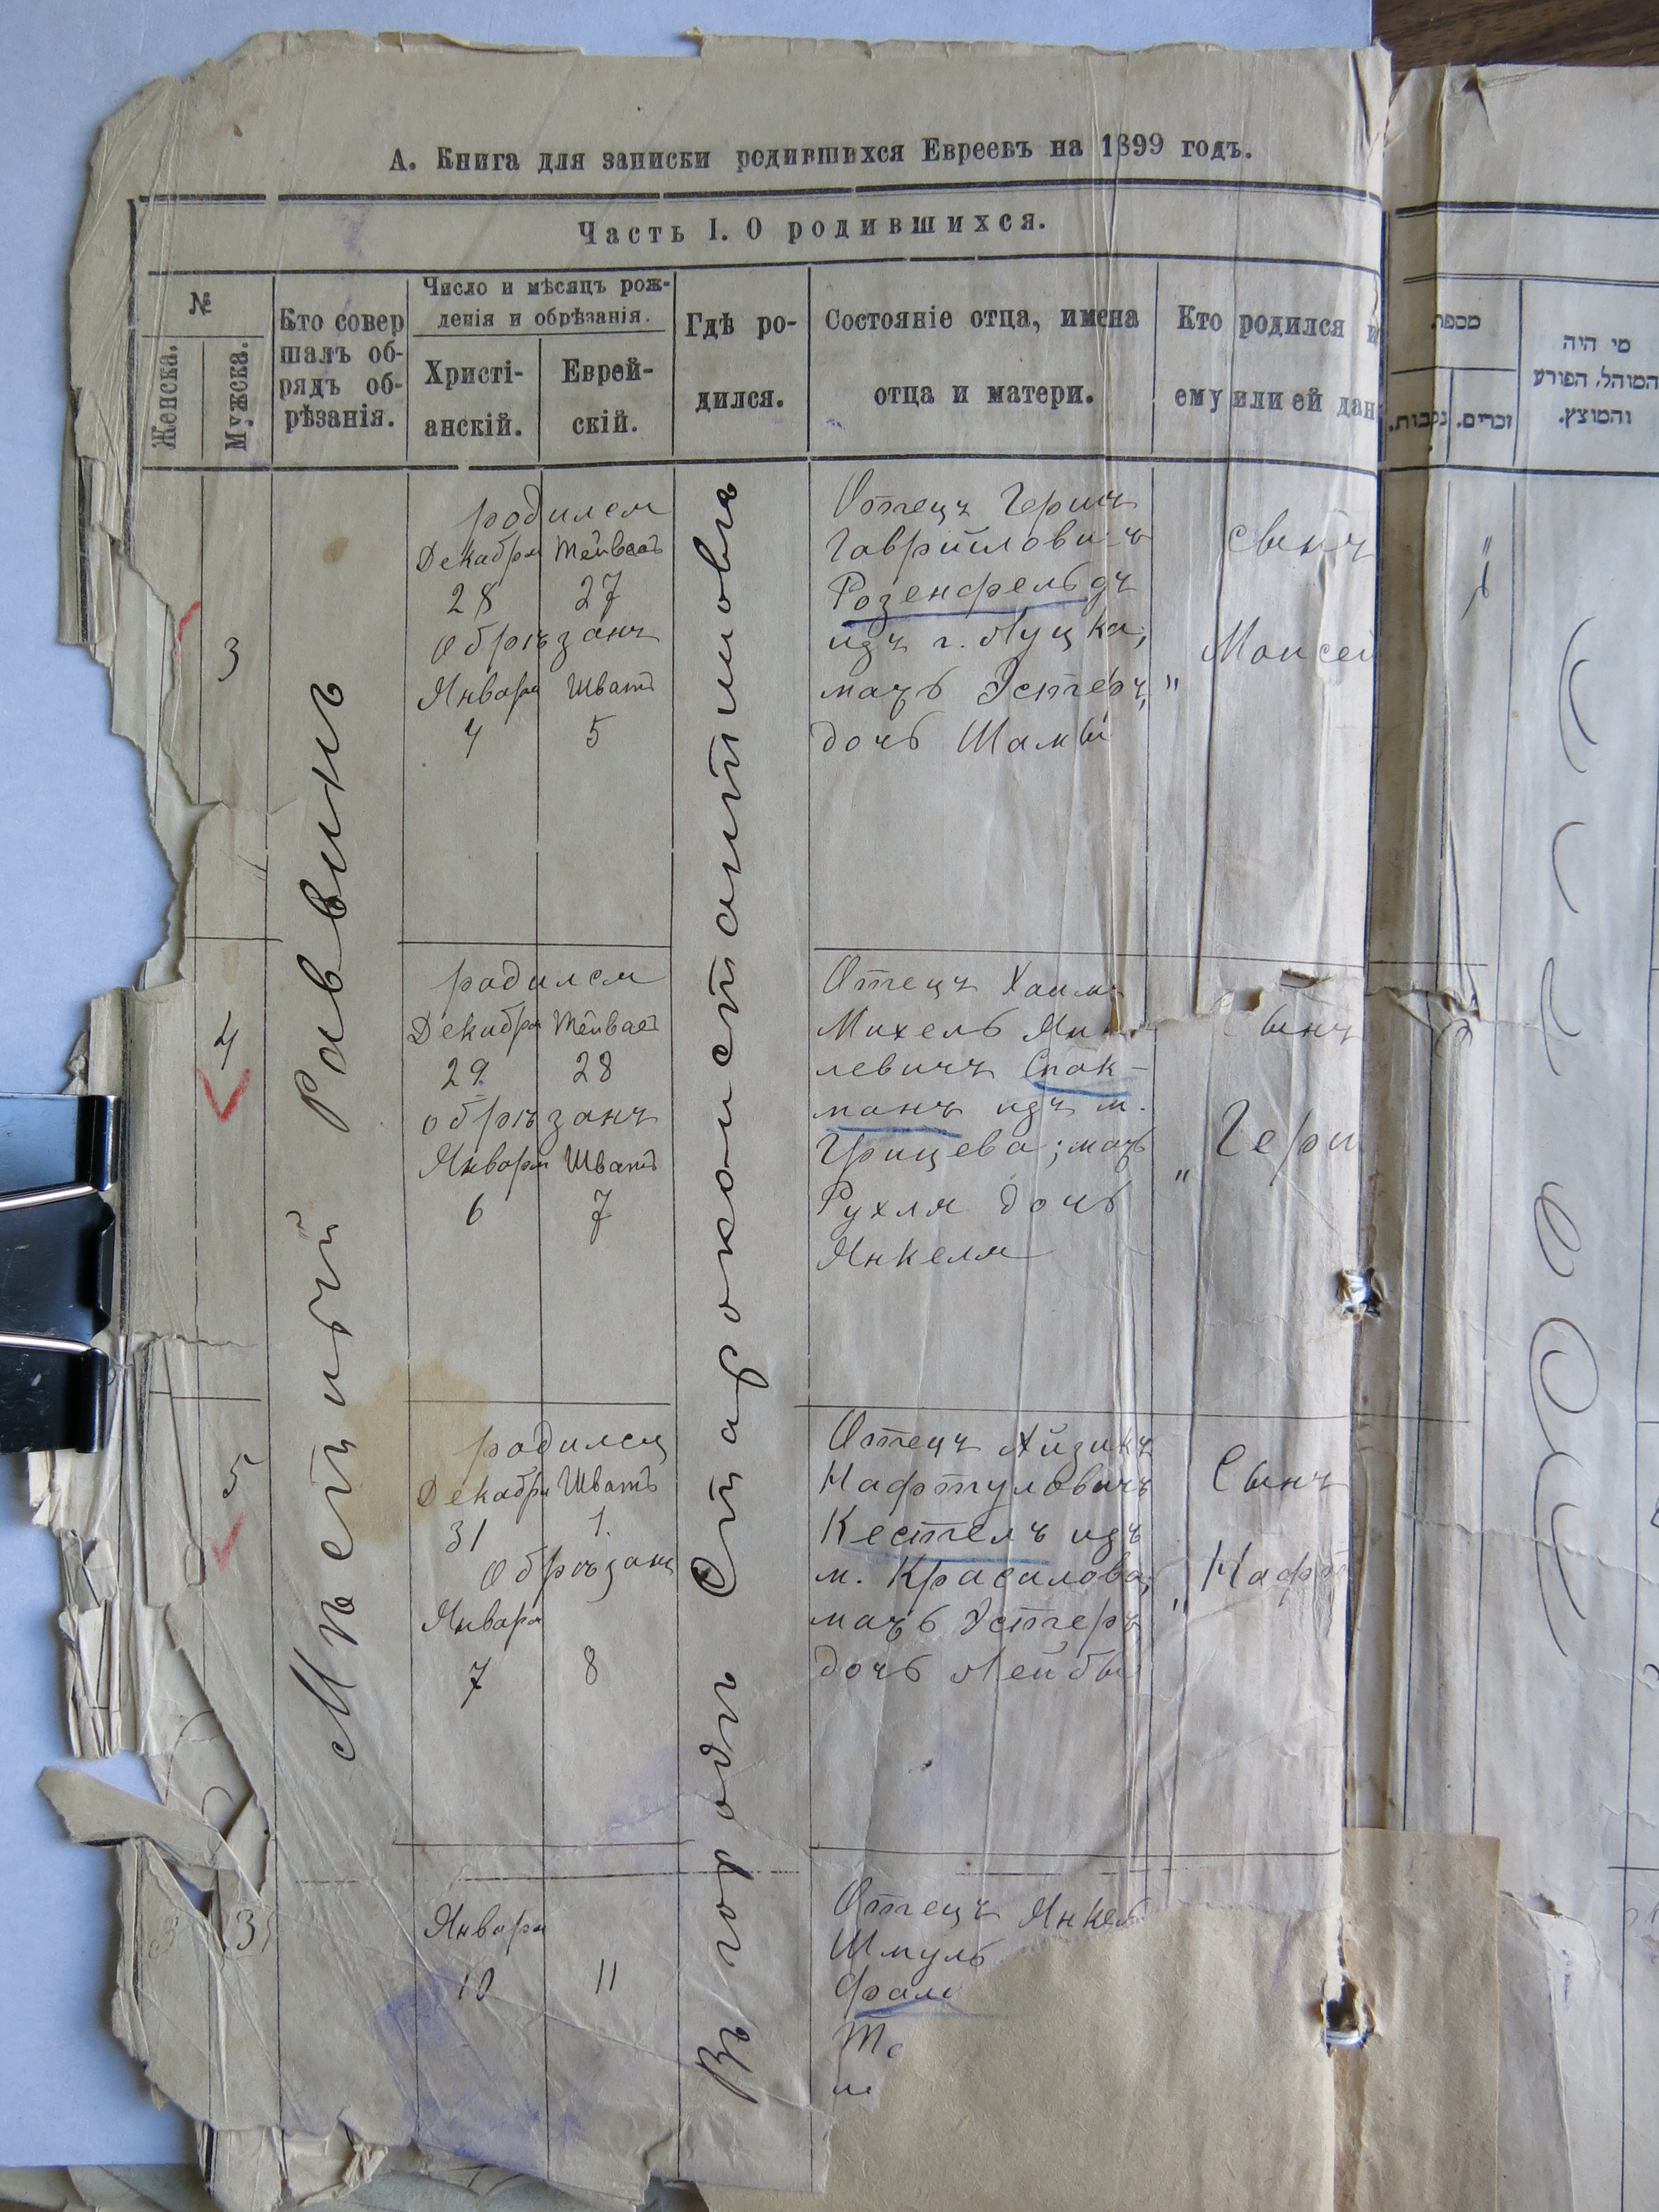 А. Книга для записки родившихся Евреевъ на 1899 годъ.
Часть I. О родившихся.
№
Женска.
Мужска.
Кто совер
шалъ об-
рядъ об-
рѣзанія.
Число и мѣсяцъ рож-
денія и обрѣзанія.
Христі-
анскій.
Еврей-
скій.
Гдѣ ро-
дился.
Состояніе отца, имена
отца и матери.
Кто родился и
ему или ей дан
מספר
נקבות.
זכרים.
מי היה
המוהל, הפורע
והמוצץ.
Мѣстный Раввинъ
Въ городѣ Староконстантиновѣ
3
родился
Декабря Тейвесъ
28 27
обрѣзанъ
Января Шватъ
4 5
Отецъ Гершъ
Гаврииловичъ
Розенфельдъ
изъ г. Луцка;
мать Эстеръ,
дочь Шамы
сынъ
" Моисей
4
родился
Декабря Тейвесъ
29 28
обрѣзанъ
Января Шватъ
6 7
Отецъ Хаимъ
Михель Ян
левичъ Спак-
манъ изъ м.
Грицева; мать
Рухля дочь
Янкеля
сынъ
" Герш
5
родился
Декабря Шватъ
31 1.
Обрѣзанъ
Января
7 8
Отецъ Айзикъ
Нафтуловичъ
Кестелъ изъ
м. Красилова;
мать Эстеръ
дочь Лейбы
Сынъ
" Нафт
3
Января
10 11
Отецъ Янкель
Шмуль